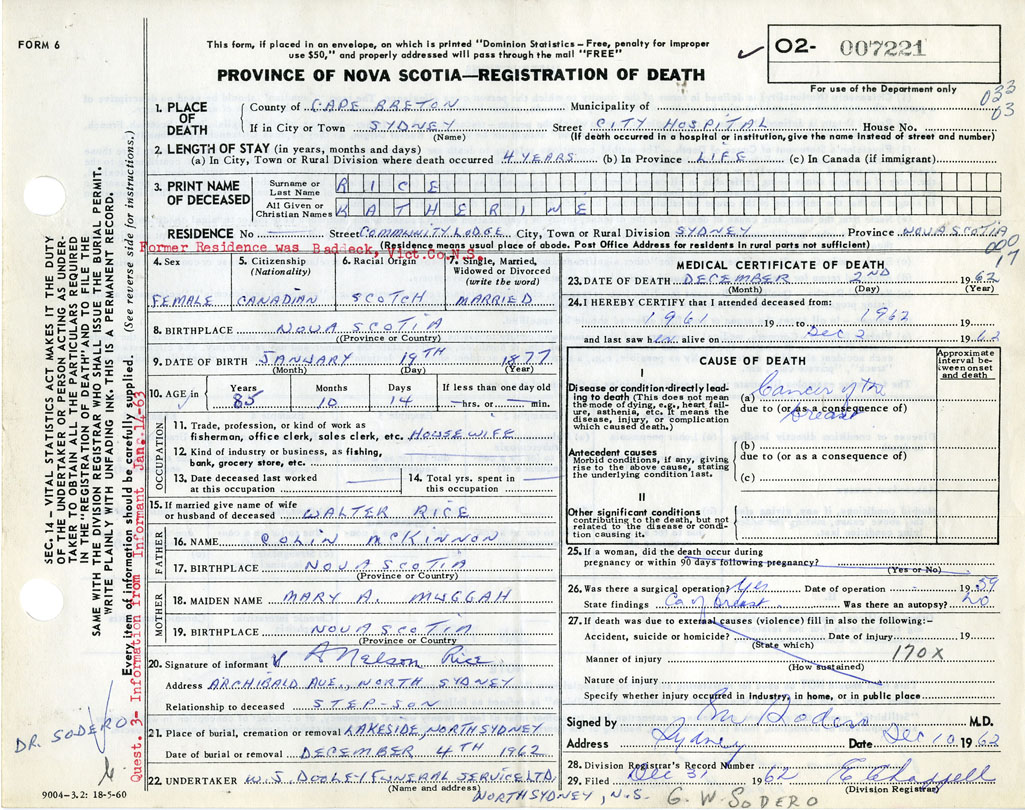 FORM 6
This form, if placed in an envelope, on which is printed "Dominion Statistics – Free, penalty for improper
use $50," and properly addressed will pass through the mail "FREE"
02- 007221
PROVINCE OF NOVA SCOTIA—REGISTRATION OF DEATH
For use of the Department only
033
03
1. PLACE OF DEATH
County of CAPE BRETON Municipality of
If in City or Town SYDNEY Street CITY HOSPITAL House No.
(Name) (If death occurred in a hospital or institution, give the name instead of street and number)
2. LENGTH OF STAY (in years, months and days)
(a) In City, Town or Rural Division where death occurred 4 YEARS (b) In Province LIFE (c) In Canada (if immigrant)
3. PRINT NAME OF DECEASED
Surname or Last Name RICE
All Given or Christian Names KATHERINE
RESIDENCE No Street COMMUNITY LODGE City, Town or Rural Division SYDNEY Province NOVA SCOTIA
Former Residence was Baddeck, Vict.Co.N.S.
(Residence means usual place of abode. Post Office Address for residents in rural parts not sufficient)
000
17
4. Sex
FEMALE
5. Citizenship
(Nationality)
CANADIAN
6. Racial Origin
SCOTCH
7. Single, Married,
Widowed or Divorced
(write the word)
MARRIED
8. BIRTHPLACE NOVA SCOTIA
(Province or Country)
9. DATE OF BIRTH JANUARY 19TH 1877
(Month) (Day) (Year)
10. AGE in
Years Months Days If less than one day old
85 10 14 hrs. or min.
OCCUPATION
11. Trade, profession, or kind of work as
fisherman, office clerk, sales clerk, etc. HOUSEWIFE
12. Kind of industry or business, as fishing,
bank, grocery store, etc.
13. Date deceased last worked
at this occupation
14. Total yrs. spent in
this occupation
15. If married give name of wife
or husband of deceased WALTER RICE
FATHER
16. NAME COLIN McKINNON
17. BIRTHPLACE NOVA SCOTIA
(Province or Country)
MOTHER
18. MAIDEN NAME MARY A. MUGGAH
19. BIRTHPLACE NOVA SCOTIA
(Province or Country)
20. Signature of informant A Nelson Rice
Address ARCHIBALD AVE., NORTH SYDNEY
Relationship to deceased STEP-SON
21. Place of burial, cremation or removal LAKESIDE, NORTH SYDNEY
Date of burial or removal DECEMBER 4TH 1962
22. UNDERTAKER W. S. DOOLEY FUNERAL SERVICE LTD.
(Name and address)
NORTH SYDNEY, N.S.
MEDICAL CERTIFICATE OF DEATH
23. DATE OF DEATH DECEMBER 2ND 1962
(Month) (Day) (Year)
24. I HEREBY CERTIFY that I attended deceased from:
1961 19 to 1962 19
and last saw her alive on Dec 2 1962
CAUSE OF DEATH
Approximate
interval be-
tween onset
and death
I
Disease or condition directly lead-
ing to death (This does not mean
the mode of dying, e.g., heart fail-
ure, asthenia, etc. It means the
disease, injury, or complication
which caused death.)
(a) Cancer of the
due to (or as a consequence of)
Breast
Antecedent causes
Morbid conditions, if any, giving
rise to the above cause, stating
the underlying condition last.
(b)
due to (or as a consequence of)
(c)
II
Other significant conditions
contributing to the death, but not
related to the disease or condi-
tion causing it.
25. If a woman, did the death occur during
pregnancy or within 90 days following pregnancy?
(Yes or No)
26. Was there a surgical operation? Yes Date of operation 1959
State findings Ca of breast Was there an autopsy? No
27. If death was due to external causes (violence) fill in also the following:–
Accident, suicide or homicide? Date of injury 19
(State which)
Manner of injury 170X
(How sustained)
Nature of injury
Specify whether injury occurred in industry, in home, or in public place
Signed by Sodero M.D.
Address Sydney Date Dec 10 1962
28. Division Registrar's Record Number
29. Filed Dec 31 1962 E Chappell
(Division Registrar)
G. W. SODERO
9004-3.2: 18-5-60
DR. SODERO
SEC. 14 – VITAL STATISTICS ACT MAKES IT THE DUTY
OF THE UNDERTAKER OR PERSON ACTING AS UNDER-
TAKER TO OBTAIN ALL THE PARTICULARS REQUIRED
IN THE "REGISTRATION OF DEATH" AND TO FILE THE
SAME WITH THE DIVISION REGISTRAR WHO SHALL ISSUE THE BURIAL PERMIT.
WRITE PLAINLY WITH UNFADING INK. THIS IS A PERMANENT RECORD.
Every item of information should be carefully supplied. (See reverse side for instructions.)
Quest. 3- Information from Informant Jan. 14-63